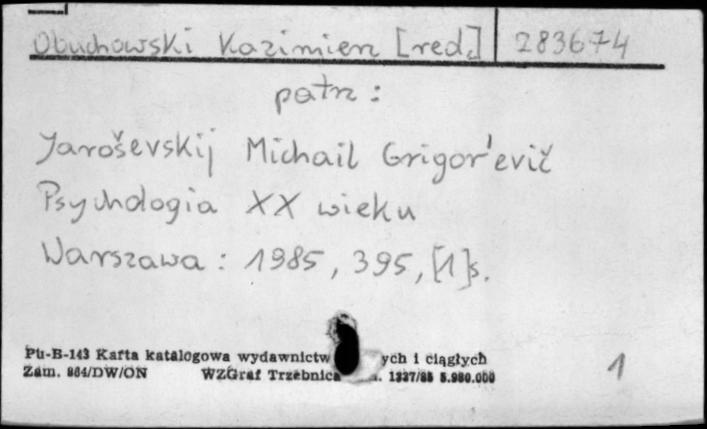 Obuchowski Kazimierz [red.] 283674
patrz:
Jaroševskij Michail Grigor'evič
Psychologia XX wieku
Warszawa: 1985, 395, [1]s.
Pu-B-143 Karta katalogowa wydawnictw ych i ciągłych
Zam. 864/DW/ON WZGraf Trzebnica . 1337/85 5.980.000
1